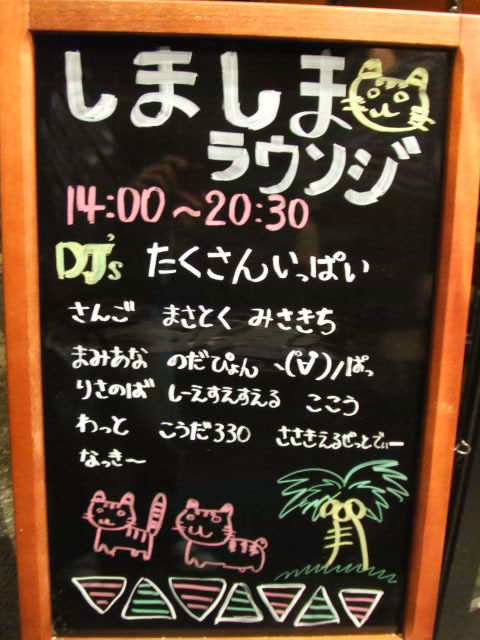 しましま
ラウンジ
14:00～20:30
DJ's たくさんいっぱい
さんご まさとく みさきち
まみあな のだぴょん ヽ(´∀`)ﾉぱっ
りさのば しーえすえすえる ここう
わっと こうだ330 ささきえるぜっとでぃー
なっき～